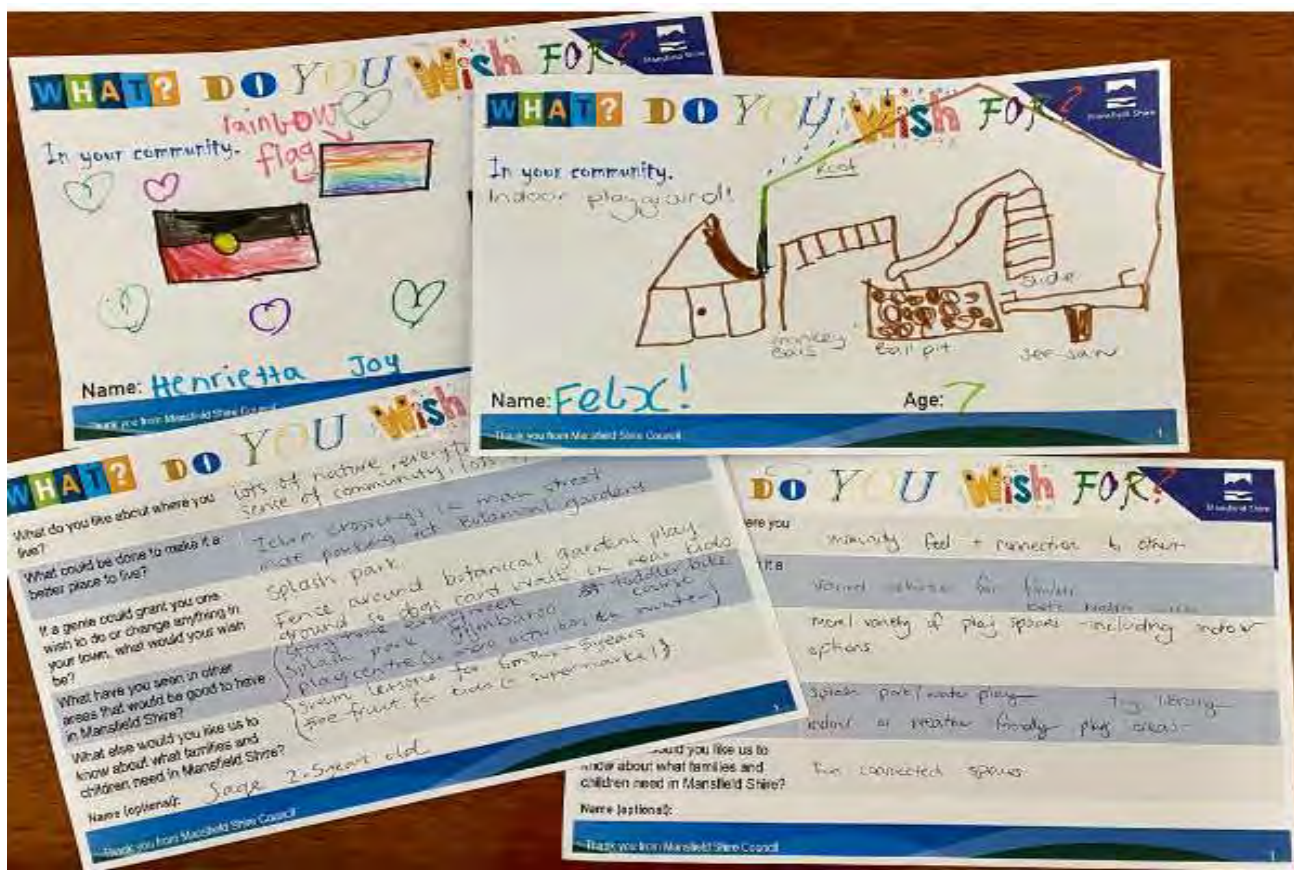 WHAT? DO YOU Wish FOR?
In your community.
rainbow
flag
Name: Henrietta Joy
Thank you from Mansfield Shire Council
WHAT? DO YOU Wish FOR?
Mansfield Shire
In your community.
Indoor playground!
roof
slide
monkey
bars
ball pit
see-saw
Name: Felix!
Age: 7
Thank you from Mansfield Shire Council
1
WHAT? DO YOU Wish
What do you like about where you
live?
lots of nature,
sense of community, lots
What could be done to make it a
better place to live?
crossings in main street
more parking at botanical gardens
splash park
If a genie could grant you one
wish to do or change anything in
your town, what would your wish
be?
Fence around botanical gardens play
ground so dogs cant walk in near kids
What have you seen in other
areas that would be good to have
in Mansfield Shire?
splash park gymbaroo toddler bike
course
play centre
What else would you like us to
know about what families and
children need in Mansfield Shire?
swim lessons for 6mths - 5years
free fruit for kids in supermarket
Name (optional): Sage 2.5 year old
Thank you from Mansfield Shire Council
DO YOU Wish FOR?
Mansfield Shire
ere you
mmunity feel + connection to others
it a
varied for
more variety of play spaces - including indoor
options
splash park/water play toy library
indoor or weather friendly play areas
ould you like us to
know about what families and
children need in Mansfield Shire?
connected spaces
Name (optional):
Thank you from Mansfield Shire Council